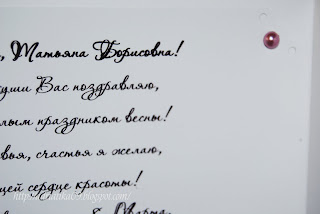 , Татьяна Борисовна!
души Вас поздравляю,
праздником весны!
счастья я желаю,
сердце красоты!
Марта